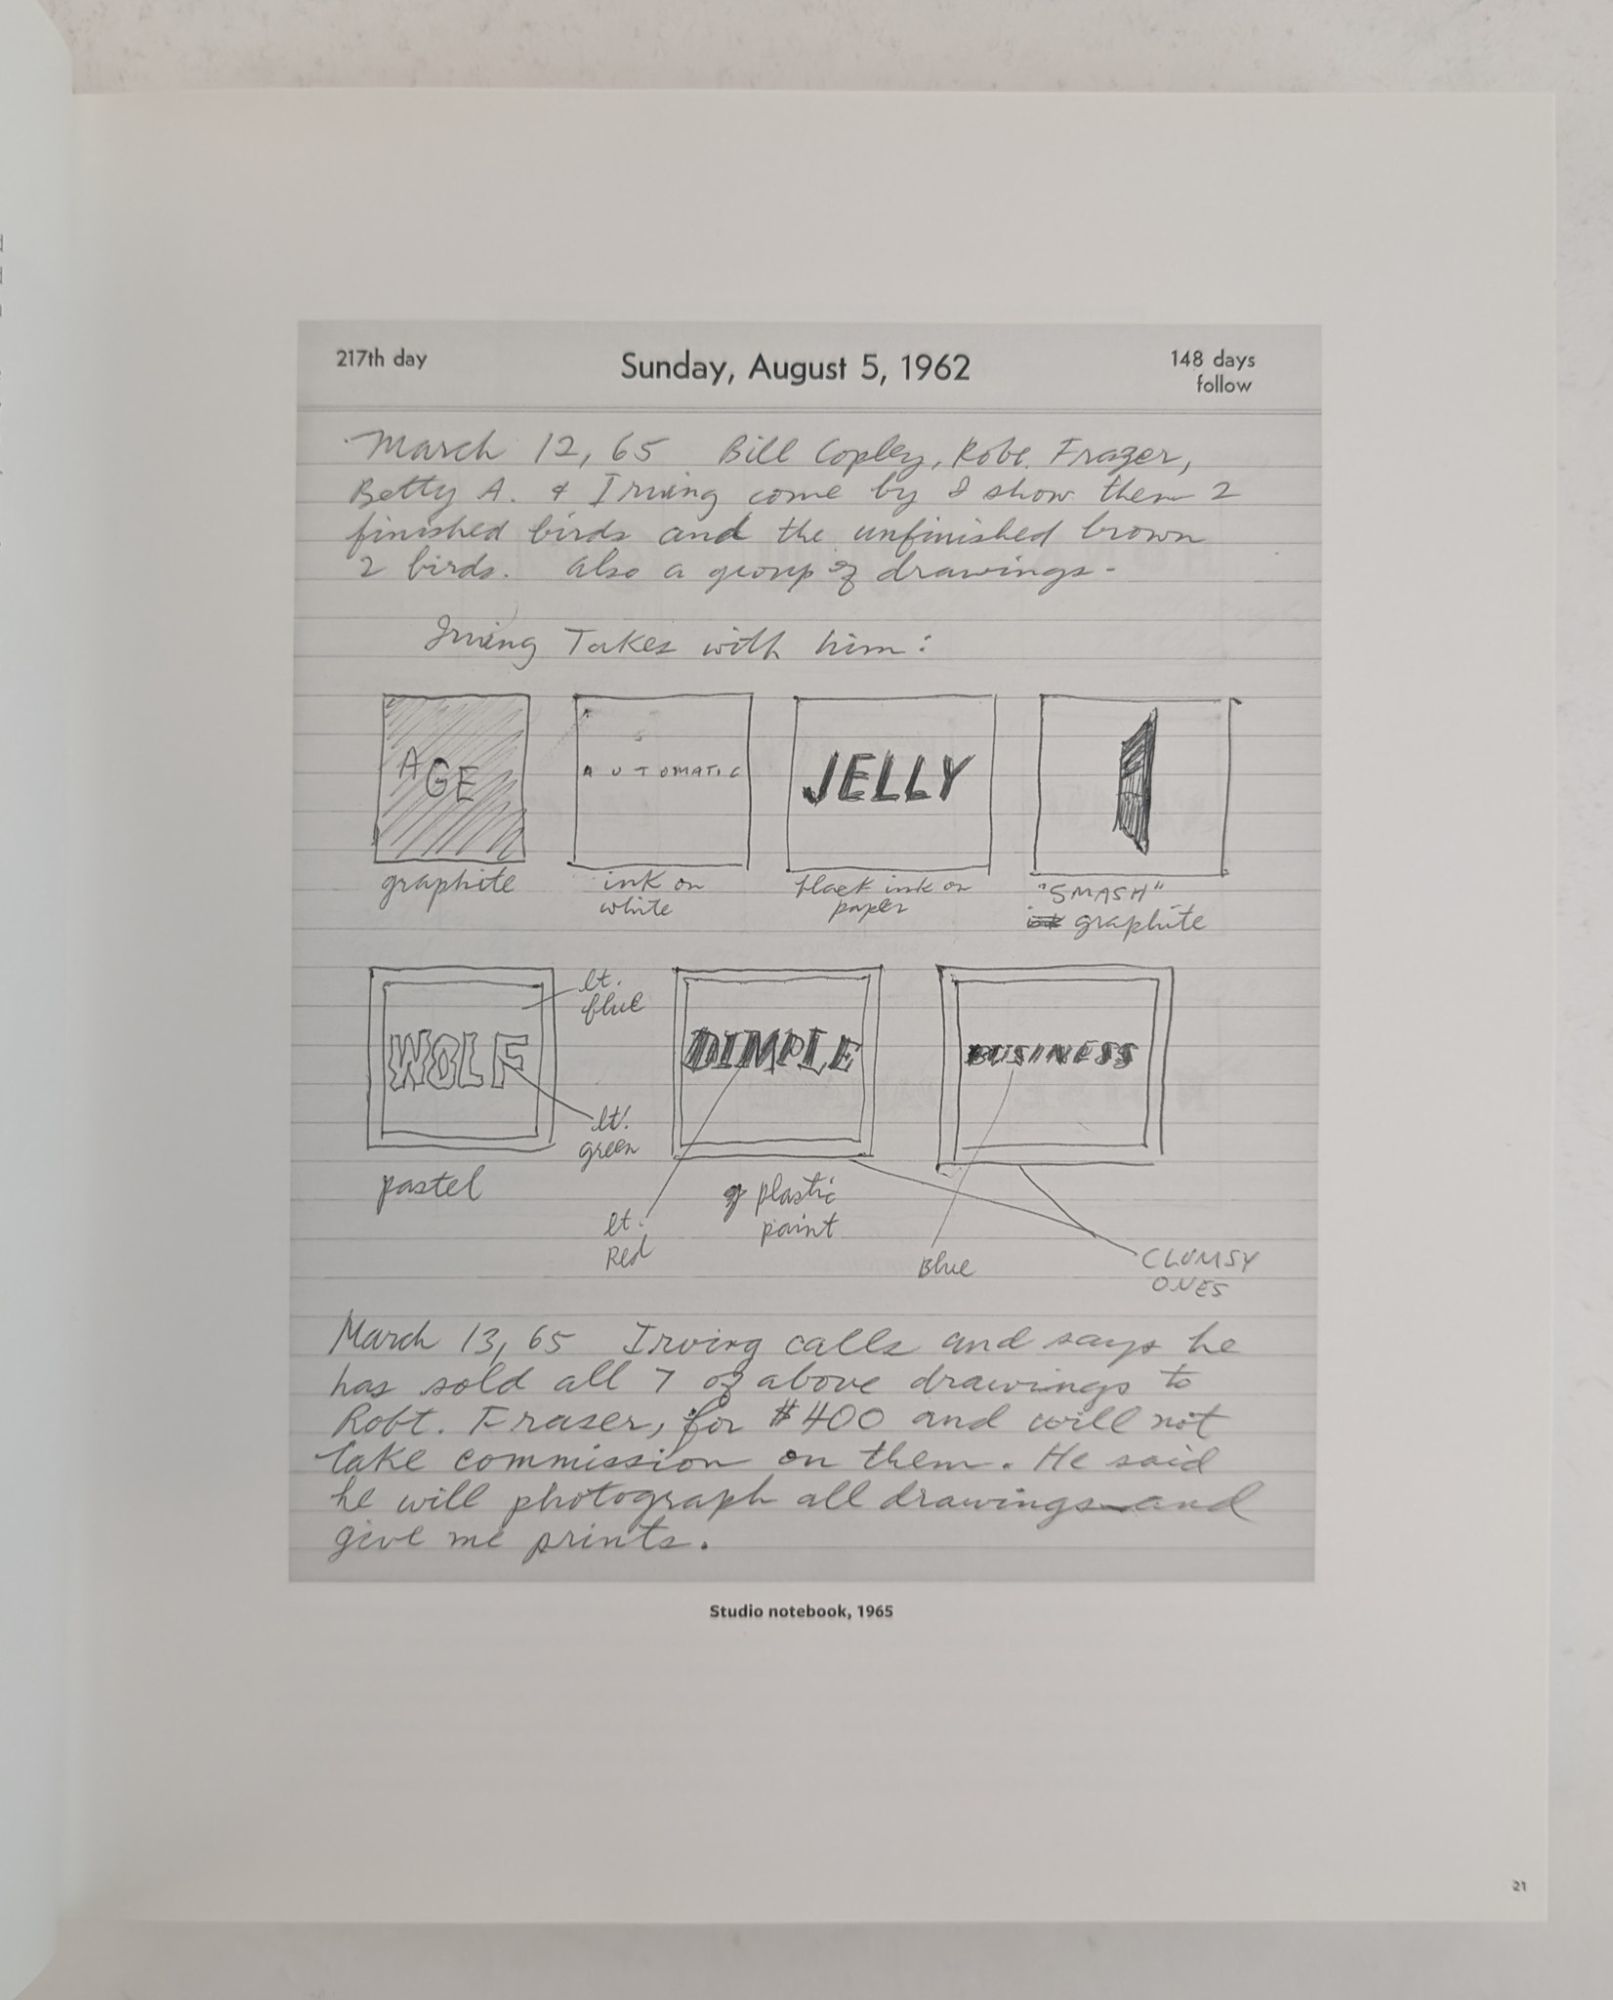 217th day
Sunday, August 5, 1962
148 days
follow
March 12, 65 Bill Copley, Robt. Frazer,
Betty A. & Irving come by I show them 2
finished birds and the unfinished brown
2 birds. Also a group of drawings -
Irving Takes with him:
AGE
AUTOMATIC
JELLY
graphite
ink on
white
black ink on
paper
"SMASH"
graphite
WOLF
lt.
blue
lt.
green
pastel
DIMPLE
lt.
Red
plastic
paint
BUSINESS
Blue
CLUMSY
ONES
March 13, 65 Irving calls and says he
has sold all 7 of above drawings to
Robt. Fraser, for $400 and will not
take commission on them. He said
he will photograph all drawings and
give me prints.
Studio notebook, 1965
21